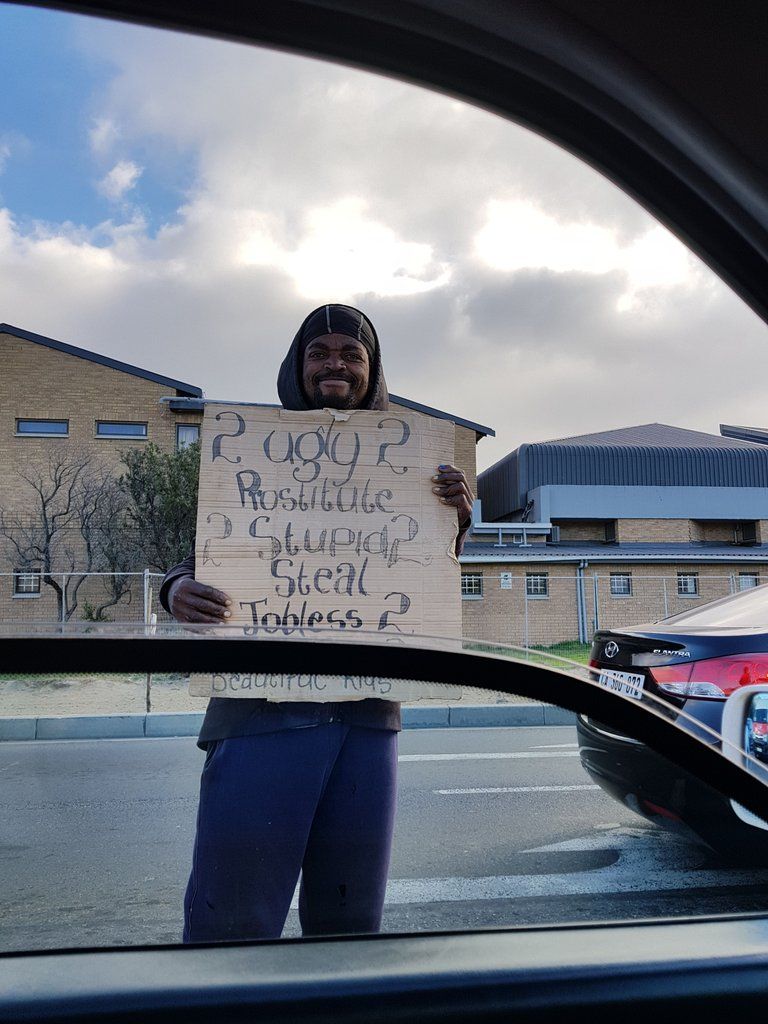 2 Ugly 2
Prostitute
2 Stupid 2
Steal
Jobless 2
Beautiful Kids
ELANTRA